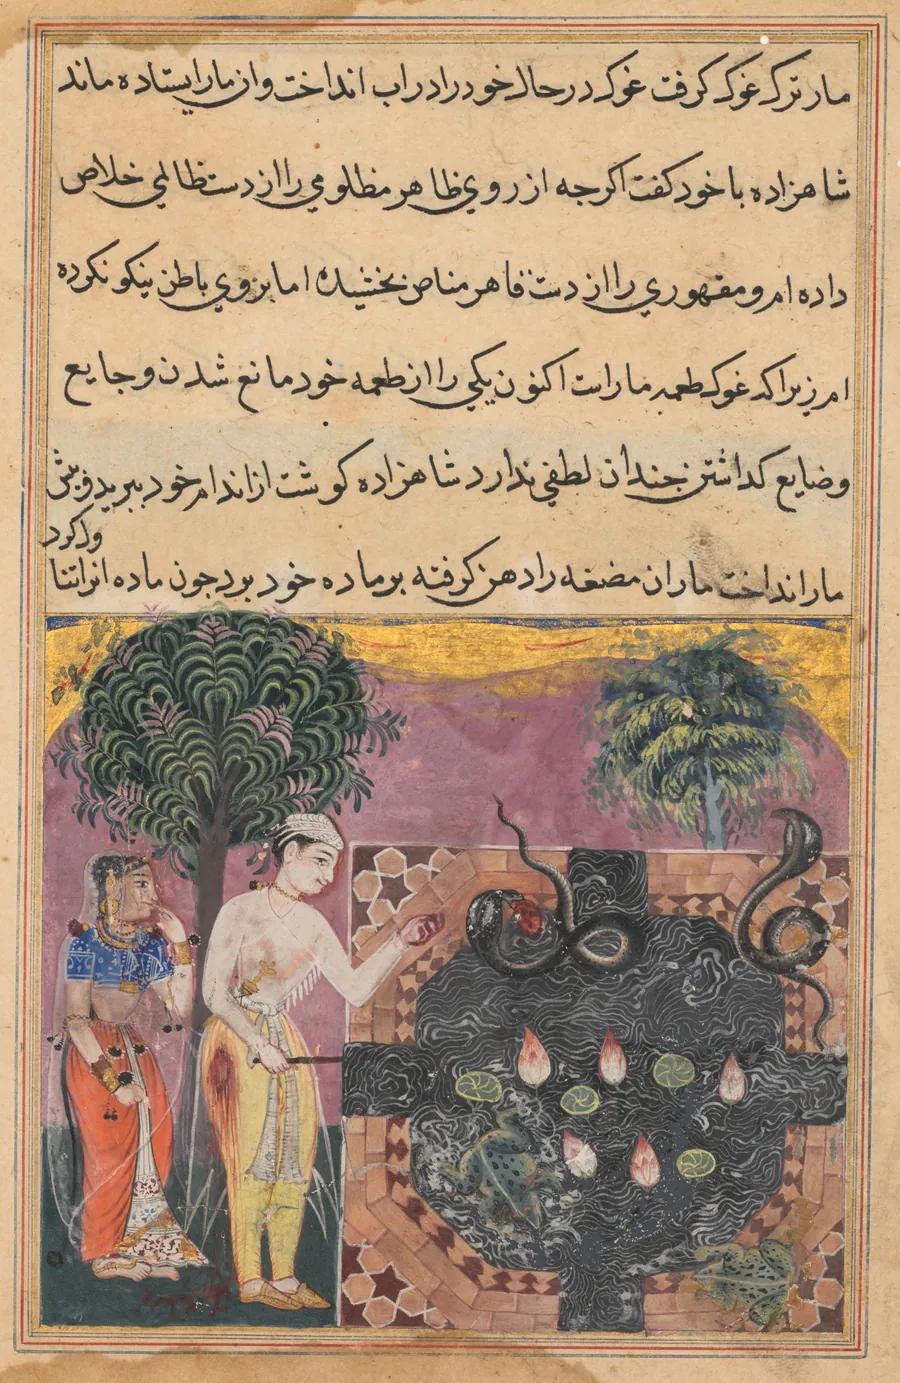 مار ترک غوک کرفت غوک در حال خود را در اب انداخت وان مار ایستاده ماند
شاهزاده با خود کفت اکرجه از روي ظاهر مظلومي را از دست ظالمي خلاص
داده ام و مقهوري را از دست قاهر مناص بخشیده اما بر روي باطن نیکو نکرده
ام زیرا که غوک طعمه مار است اکنون یکي را از طعمه خود مانع شدن و جایع
و ضایع کداشتن جندان لطفي ندارد شاهزاده کوشت از اندام خود ببرید و پیش
ول کرد
مار انداخت مار ان مضغه را دهن کرفته بر ماده خود برد جون ماده انرا تنا